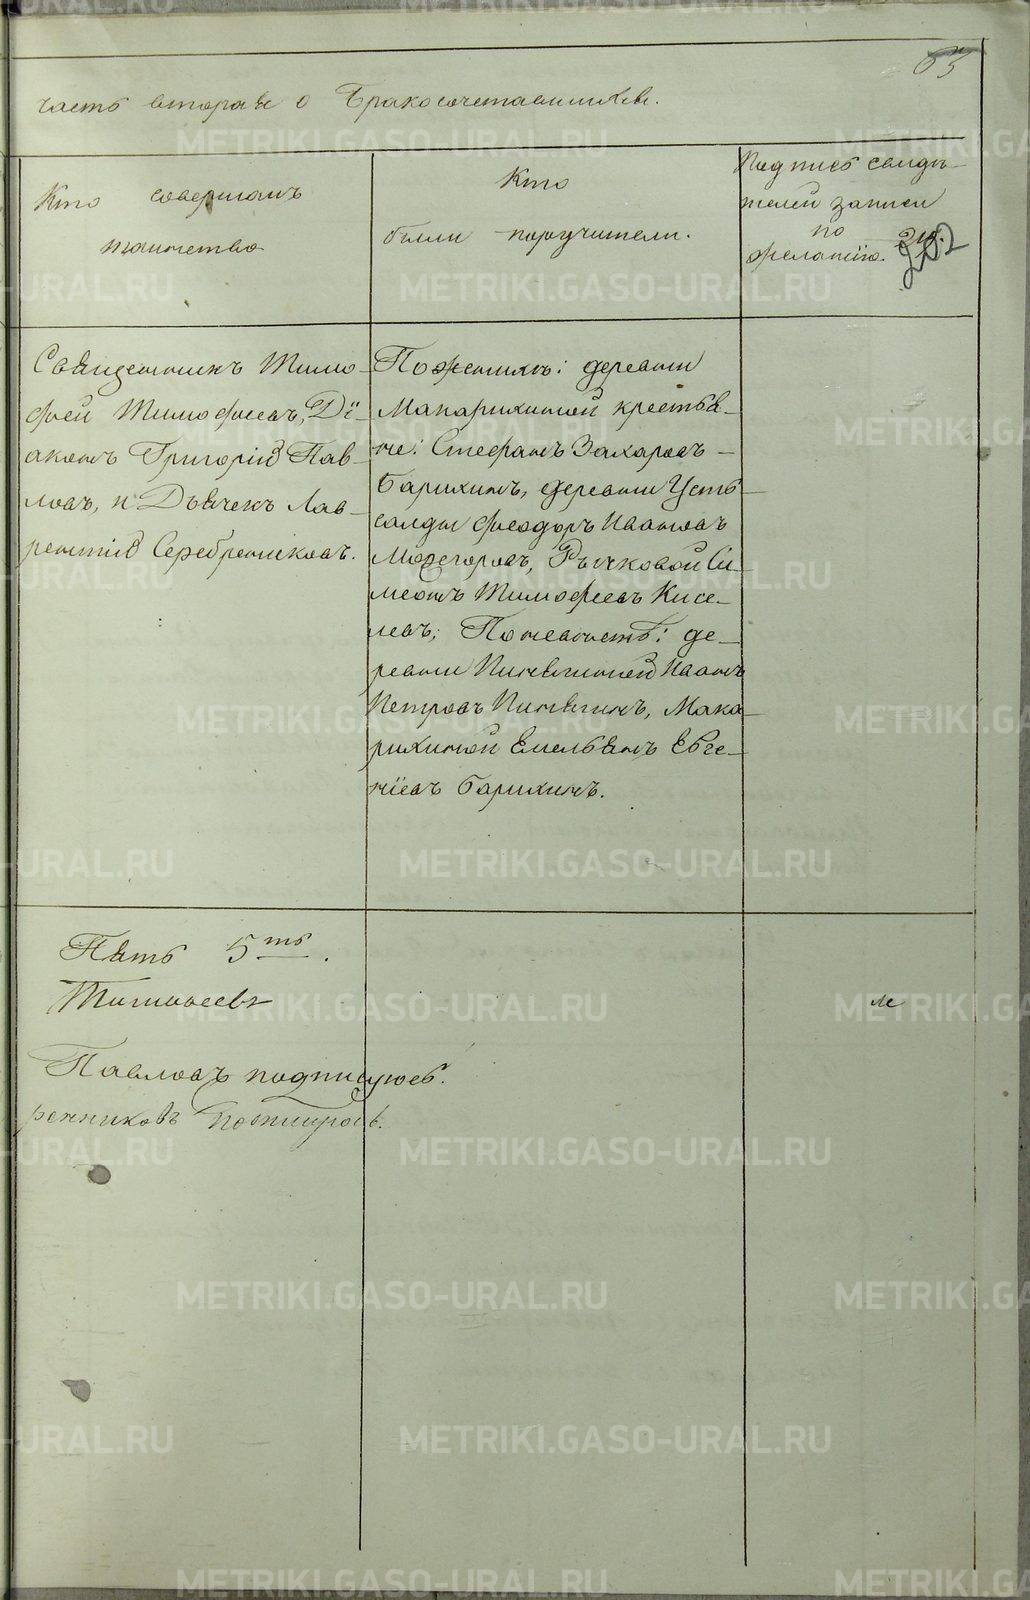 63
часть вторая о Бракосочетавшихся.
Кто совершалъ
таинство
Кто
были поручители.
Подпись свидѣ-
телей записи
по
желанію.
Священникъ Тимо-
фей Тимофеевъ, Дї-
аконъ Григорій Пав-
ловъ, и Дьячекъ Лав-
рентій Серебрениковъ.
По женихѣ: деревни
Макарихиной крестья-
не: Стефанъ Захаровъ
Барихинъ, деревни Усть-
салды Феодоръ Ивановъ
Мозегоровъ, Рычковой Си-
меонъ Тимофеевъ Кисе-
левъ; По невѣстѣ: де-
ревни Пинягиной Иванъ
Петровъ Пинягинъ, Мака-
рихиной Емельянъ Евге-
нїевъ Барихинъ.
Пять 5ть.
Тимофеевъ
Павловъ подписуюсь.
ренниковъ
METRIKI.GASO-URAL.RU